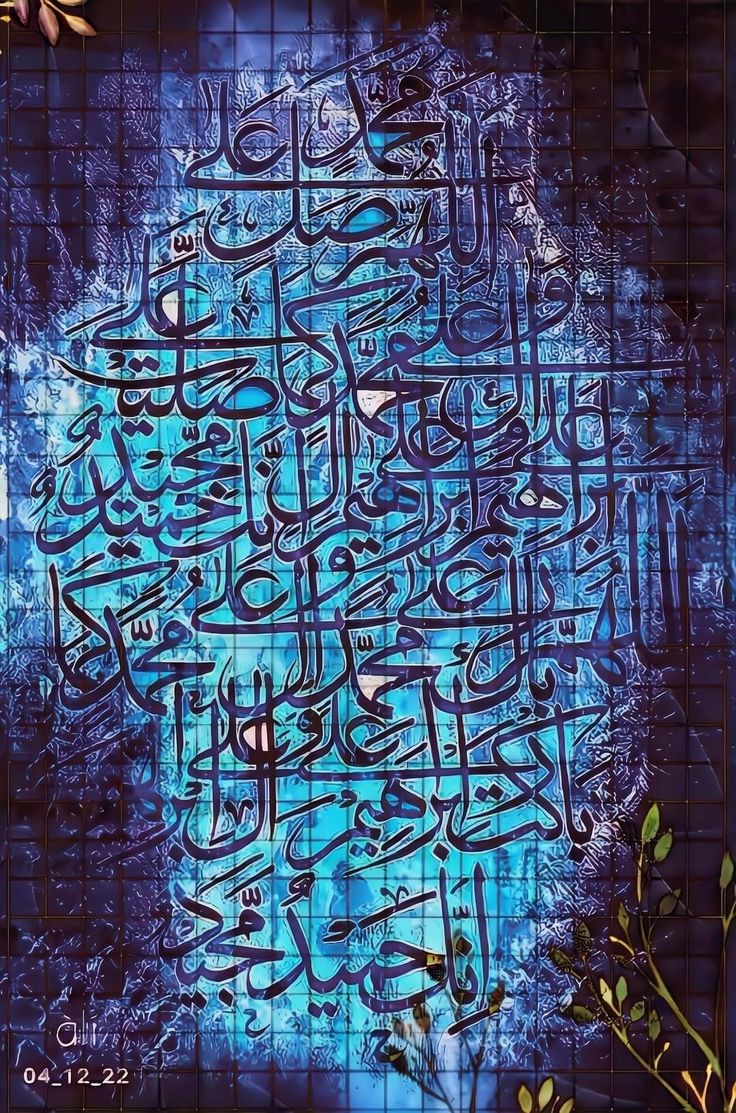 اللهم صل على محمد
وعلى آل محمد كما صليت على
إبراهيم وعلى آل إبراهيم إنك حميد مجيد
اللهم بارك على محمد وعلى آل محمد كما
باركت على إبراهيم وعلى آل إبراهيم
إنك حميد مجيد
ali
04_12_22